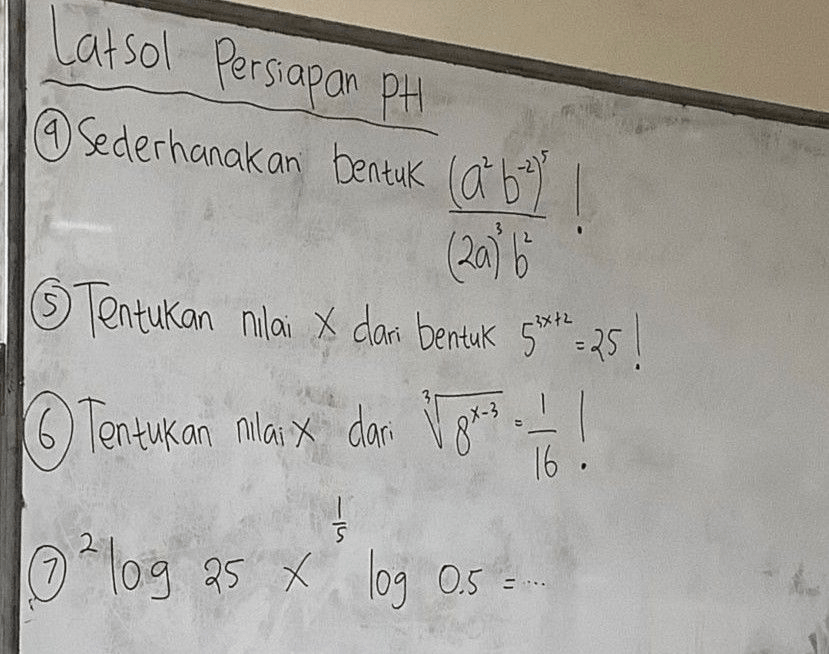 Latsol Persiapan PH
④ Sederhanakan bentuk (a²b⁻²)⁵ / (2a)³b² !
⑤ Tentukan nilai x dari bentuk 5³ˣ⁺² = 25 !
⑥ Tentukan nilai x dari ∛(8ˣ⁻³) = 1/16 !
⑦ ²log 25 × ^(1/5)log 0.5 = ...